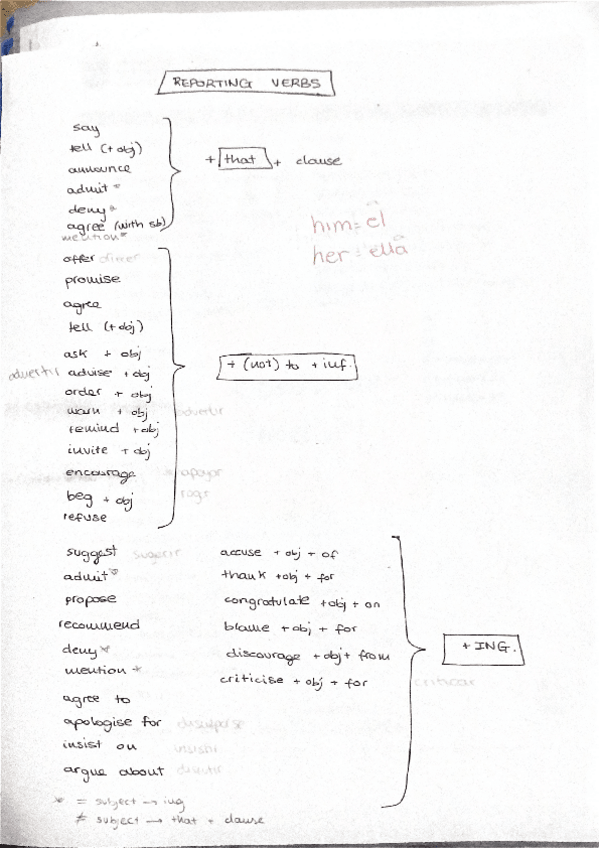 REPORTING VERBS
say
tell (+ obj)
announce
admit *
deny *
agree (with sb)
mention *
+ that + clause
him = él
her = ella
offer
promise
agree
tell (+ obj)
ask + obj
advertir advise + obj
order + obj
warn + obj advertir
remind + obj
invite + obj
encourage apoyar
beg + obj
refuse
+ (not) to + inf.
suggest sugerir
admit *
propose
recommend
deny *
mention *
agree to
apologise for
insist on
argue about
accuse + obj + of
thank + obj + for
congratulate + obj + on
blame + obj + for
discourage + obj + from
criticise + obj + for criticar
+ ING.
* = subject → ing
≠ subject → that + clause